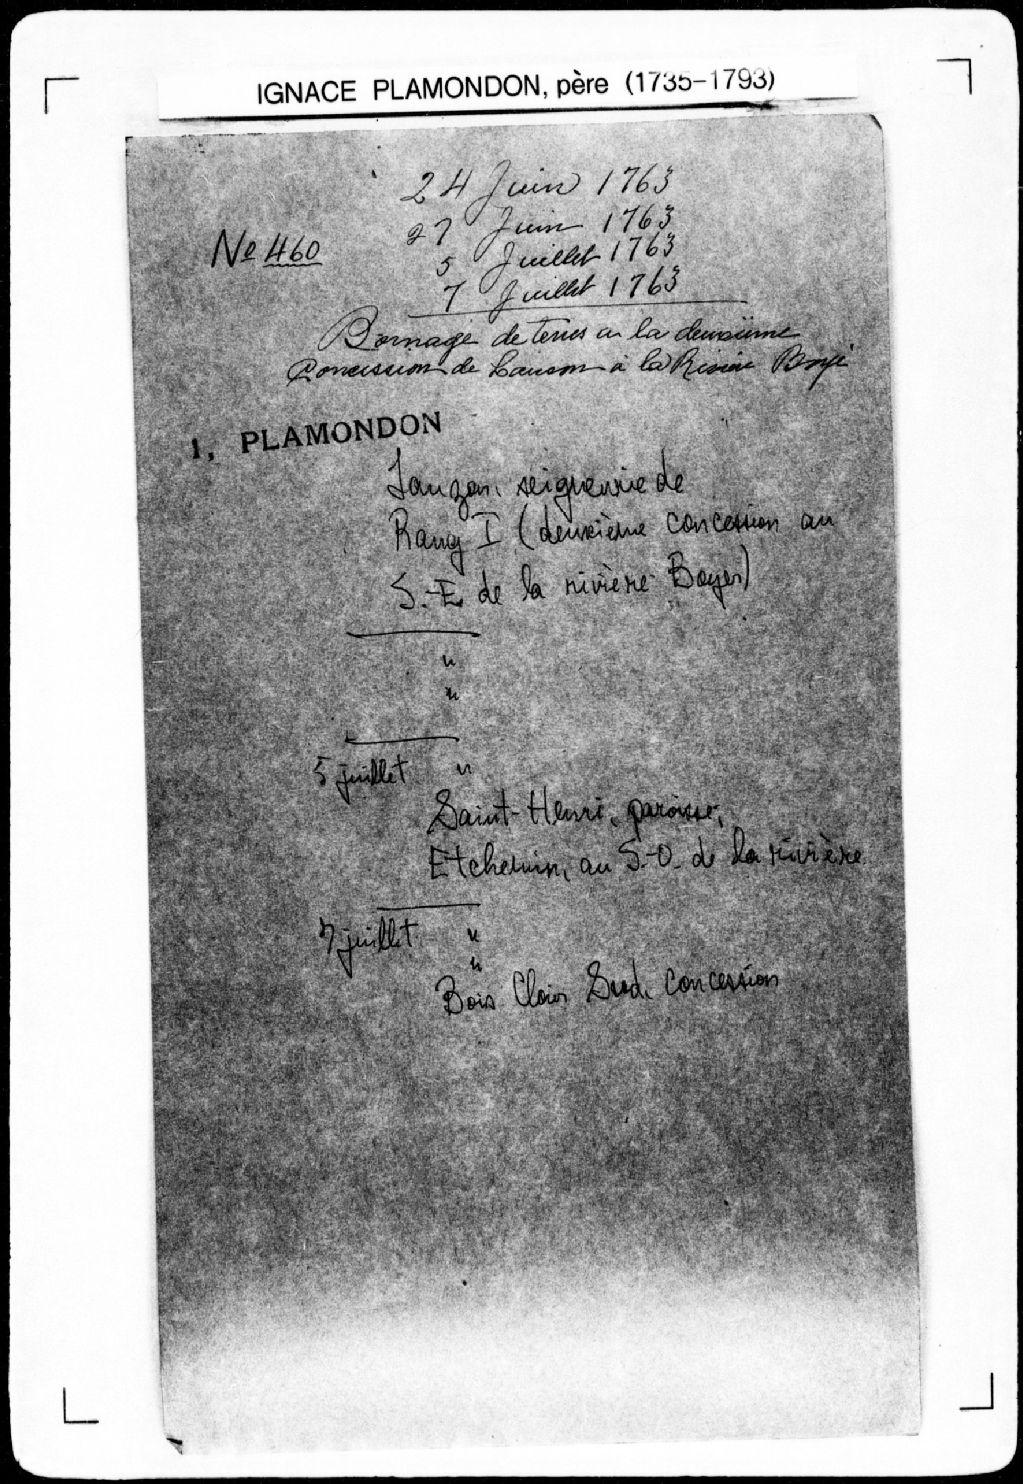 IGNACE PLAMONDON, père (1735-1793)
24 Juin 1763
27 Juin 1763
No 460
5 Juillet 1763
7 Juillet 1763
Bornage de terres a la deuxième
Concession de Lauson à la Rivière Boyé
I, PLAMONDON
Lauzon, seigneurie de
Rang I (deuxième concession au
S.-E. de la rivière Boyer)
"
"
5 juillet "
Saint-Henri, paroisse,
Etchemin, au S.-O. de la rivière
7 juillet "
"
Bois Clair Sud, concession